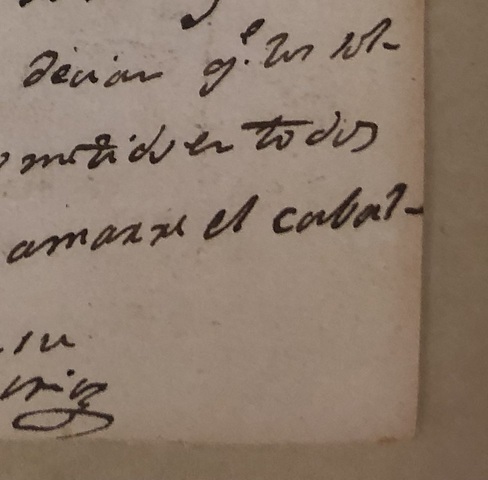 decian q.e los sol-
metido en todos
amarre el cabal-
su